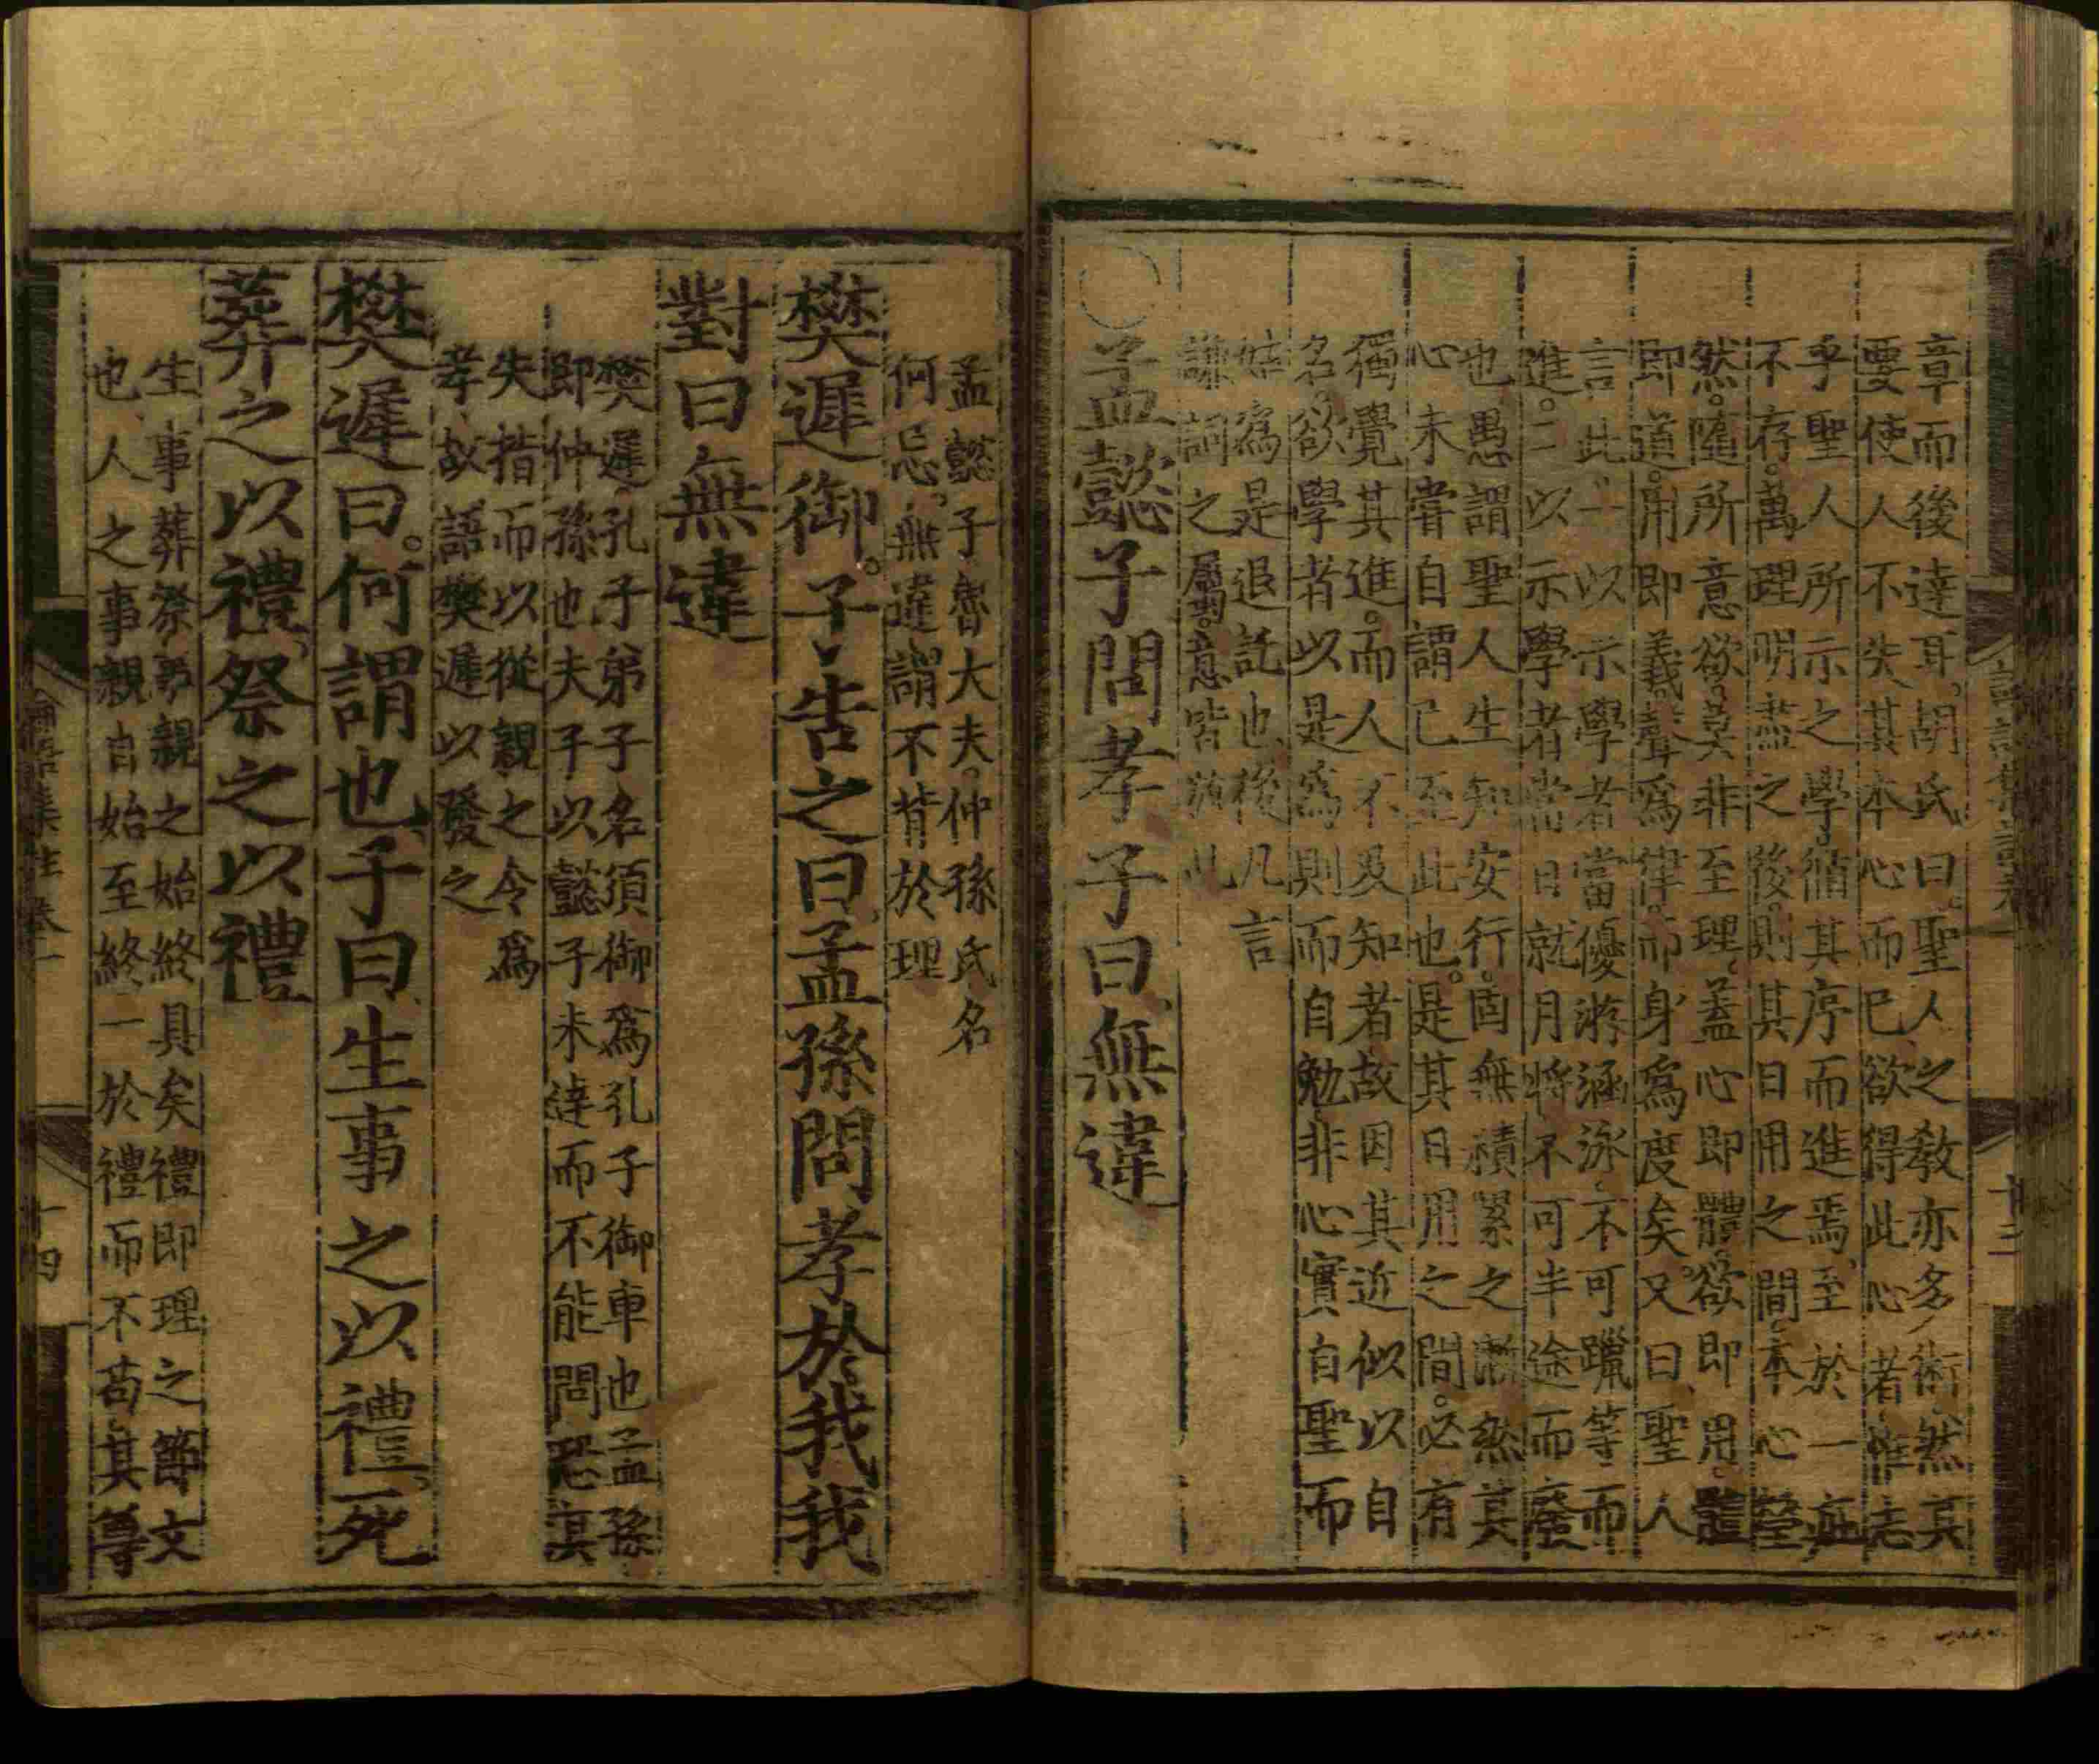 章而後達耳胡氏曰聖人之敎亦多術然其
要使人不失其本心而已欲得此心者惟志
乎聖人所示之學循其序而進焉至於一疵
不存萬理明盡之後則其日用之間本心瑩
然隨所意欲莫非至理蓋心即體欲即用體
即道用即義聲爲律而身爲度矣又曰聖人
言此一以示學者當優游涵泳不可躐等而
進二以示學者當日就月將不可半途而廢
也愚謂聖人生知安行固無積累之漸然其
心未嘗自謂已至此也是其日用之間必有
獨覺其進而人不及知者故因其近似以自
名欲學者以是爲則而自勉非心實自聖而
姑爲是退託也後凡言
謙詞之屬意皆放此
○孟懿子問孝子曰無違
孟懿子魯大夫仲孫氏名
何忌無違謂不背於理
樊遲御子告之曰孟孫問孝於我我
對曰無違
樊遲孔子弟子名須御爲孔子御車也孟孫
即仲孫也夫子以懿子未達而不能問恐其
失指而以從親之令爲
孝故語樊遲以發之
樊遲曰何謂也子曰生事之以禮死
葬之以禮祭之以禮
生事葬祭事親之始終具矣禮即理之節文
也人之事親自始至終一於禮而不苟其尊
論語集註卷一
十四